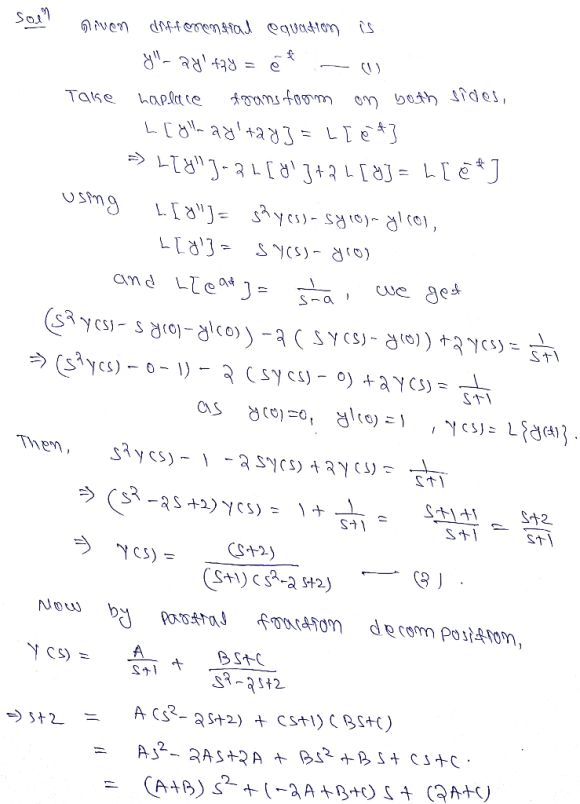 Solⁿ Given differential equation is
y'' - 2y' + 2y = e^-t — (1)
Take Laplace transform on both sides,
L[y'' - 2y' + 2y] = L[e^-t]
⇒ L[y''] - 2L[y'] + 2L[y] = L[e^-t]
using L[y''] = s²Y(s) - sy(0) - y'(0),
L[y'] = sY(s) - y(0)
and L[e^at] = 1/(s-a), we get
(s²Y(s) - sy(0) - y'(0)) - 2(sY(s) - y(0)) + 2Y(s) = 1/(s+1)
⇒ (s²Y(s) - 0 - 1) - 2(sY(s) - 0) + 2Y(s) = 1/(s+1)
as y(0)=0, y'(0)=1, Y(s) = L{y(t)}.
Then, s²Y(s) - 1 - 2sY(s) + 2Y(s) = 1/(s+1)
⇒ (s² - 2s + 2)Y(s) = 1 + 1/(s+1) = (s+1+1)/(s+1) = (s+2)/(s+1)
⇒ Y(s) = (s+2)/((s+1)(s²-2s+2)) — (2).
Now by partial fraction decomposition,
Y(s) = A/(s+1) + (Bs+C)/(s²-2s+2)
⇒ s+2 = A(s²-2s+2) + (s+1)(Bs+C)
= As² - 2As + 2A + Bs² + Bs + Cs + C.
= (A+B)s² + (-2A+B+C)s + (2A+C)